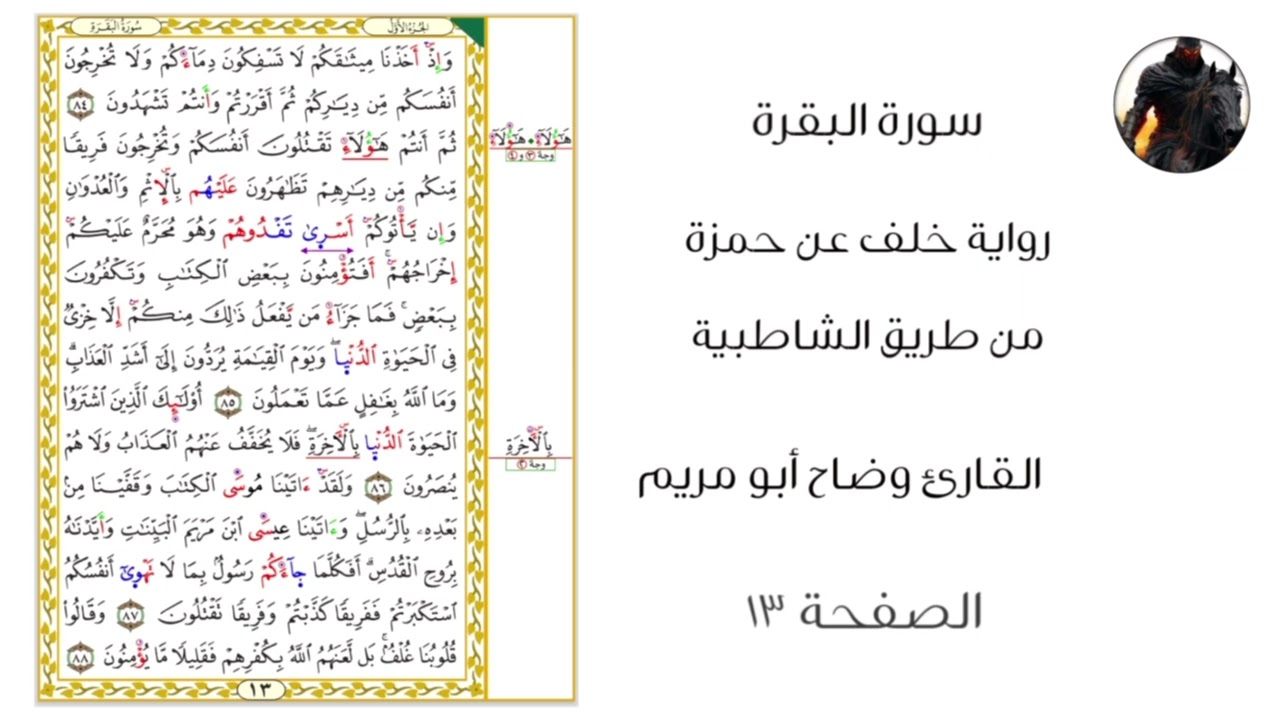 سُورَةُ البَقَرَةِ
الجُزْءُ الأَوَّلُ
وَإِذْ أَخَذْنَا مِيثَٰقَكُمْ لَا تَسْفِكُونَ دِمَآءَكُمْ وَلَا تُخْرِجُونَ
أَنفُسَكُم مِّن دِيَٰرِكُمْ ثُمَّ أَقْرَرْتُمْ وَأَنتُمْ تَشْهَدُونَ ٨٤
ثُمَّ أَنتُمْ هَٰٓؤُلَآءِ تَقْتُلُونَ أَنفُسَكُمْ وَتُخْرِجُونَ فَرِيقًا
مِّنكُم مِّن دِيَٰرِهِمْ تَظَٰهَرُونَ عَلَيْهُم بِالْإِثْمِ وَالْعُدْوَٰنِ
وَإِن يَأْتُوكُمْ أَسْرَىٰ تَفْدُوهُمْ وَهُوَ مُحَرَّمٌ عَلَيْكُمْ
إِخْرَاجُهُمْ ۚ أَفَتُؤْمِنُونَ بِبَعْضِ الْكِتَٰبِ وَتَكْفُرُونَ
بِبَعْضٍ ۚ فَمَا جَزَآءُ مَن يَفْعَلُ ذَٰلِكَ مِنكُمْ إِلَّا خِزْىٌ
فِى الْحَيَوٰةِ الدُّنْيَا ۖ وَيَوْمَ الْقِيَٰمَةِ يُرَدُّونَ إِلَىٰٓ أَشَدِّ الْعَذَابِ ۗ
وَمَا اللَّهُ بِغَٰفِلٍ عَمَّا تَعْمَلُونَ ٨٥ أُوْلَٰٓئِكَ الَّذِينَ اشْتَرَوُا
الْحَيَوٰةَ الدُّنْيَا بِالْأَخِرَةِ ۖ فَلَا يُخَفَّفُ عَنْهُمُ الْعَذَابُ وَلَا هُمْ
يُنصَرُونَ ٨٦ وَلَقَدْ ءَاتَيْنَا مُوسَى الْكِتَٰبَ وَقَفَّيْنَا مِنۢ
بَعْدِهِۦ بِالرُّسُلِ ۖ وَءَاتَيْنَا عِيسَى ابْنَ مَرْيَمَ الْبَيِّنَٰتِ وَأَيَّدْنَٰهُ
بِرُوحِ الْقُدُسِ ۗ أَفَكُلَّمَا جَآءَكُمْ رَسُولٌۢ بِمَا لَا تَهْوَىٰٓ أَنفُسُكُمُ
اسْتَكْبَرْتُمْ فَفَرِيقًا كَذَّبْتُمْ وَفَرِيقًا تَقْتُلُونَ ٨٧ وَقَالُوا
قُلُوبُنَا غُلْفٌۢ ۚ بَل لَّعَنَهُمُ اللَّهُ بِكُفْرِهِمْ فَقَلِيلًا مَّا يُؤْمِنُونَ ٨٨
١٣
هَٰٓؤُلَآءِ + هَٰٓؤُلَآءِ
وجهٔ ٣ و ٤
بِالْأَخِرَةِ
وجهٔ ٢
سورة البقرة
رواية خلف عن حمزة
من طريق الشاطبية
القارئ وضاح أبو مريم
الصفحة ١٣